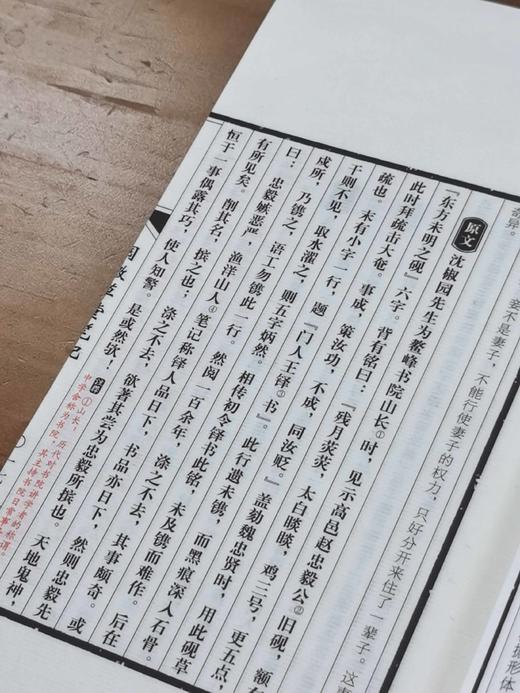 奇异。
妾不是妻子，不能行使妻子的权力，只好分开来住了一辈子。这
原文 沈椒园先生为鳌峰书院山长①时，见示高邑赵忠毅公②旧砚，额有
「东方未明之砚」六字。背有铭曰：「残月荧荧，太白睒睒，鸡三号，更五点，
此时拜疏击大奄。事成，策汝功，不成，同汝贬。」盖劾魏忠贤时，用此砚草
疏也。末有小字一行，题「门人王铎③书」。此行遗未镌，而黑痕深入石骨。
干则不见，取水濯之，则五字炳然。相传初令铎书此铭，未及镌而难作。后在
戍所，乃镌之，语工勿镌此二行。然阅一百余年，涤之不去，其事颇奇。或
曰：忠毅嫉恶严，渔洋山人④笔记称铎人品日下，书品亦日下，然则忠毅先
有所见矣。削其名，摈之也；涤之不去，欲著其尝为忠毅所摈也。天地鬼神，
恒于一事偶露其巧，使人知警。是或然欤！
①山长：历代对书院讲学者的称谓。
中学舍称为书院，其主持书院日常事务
阅微草堂笔记